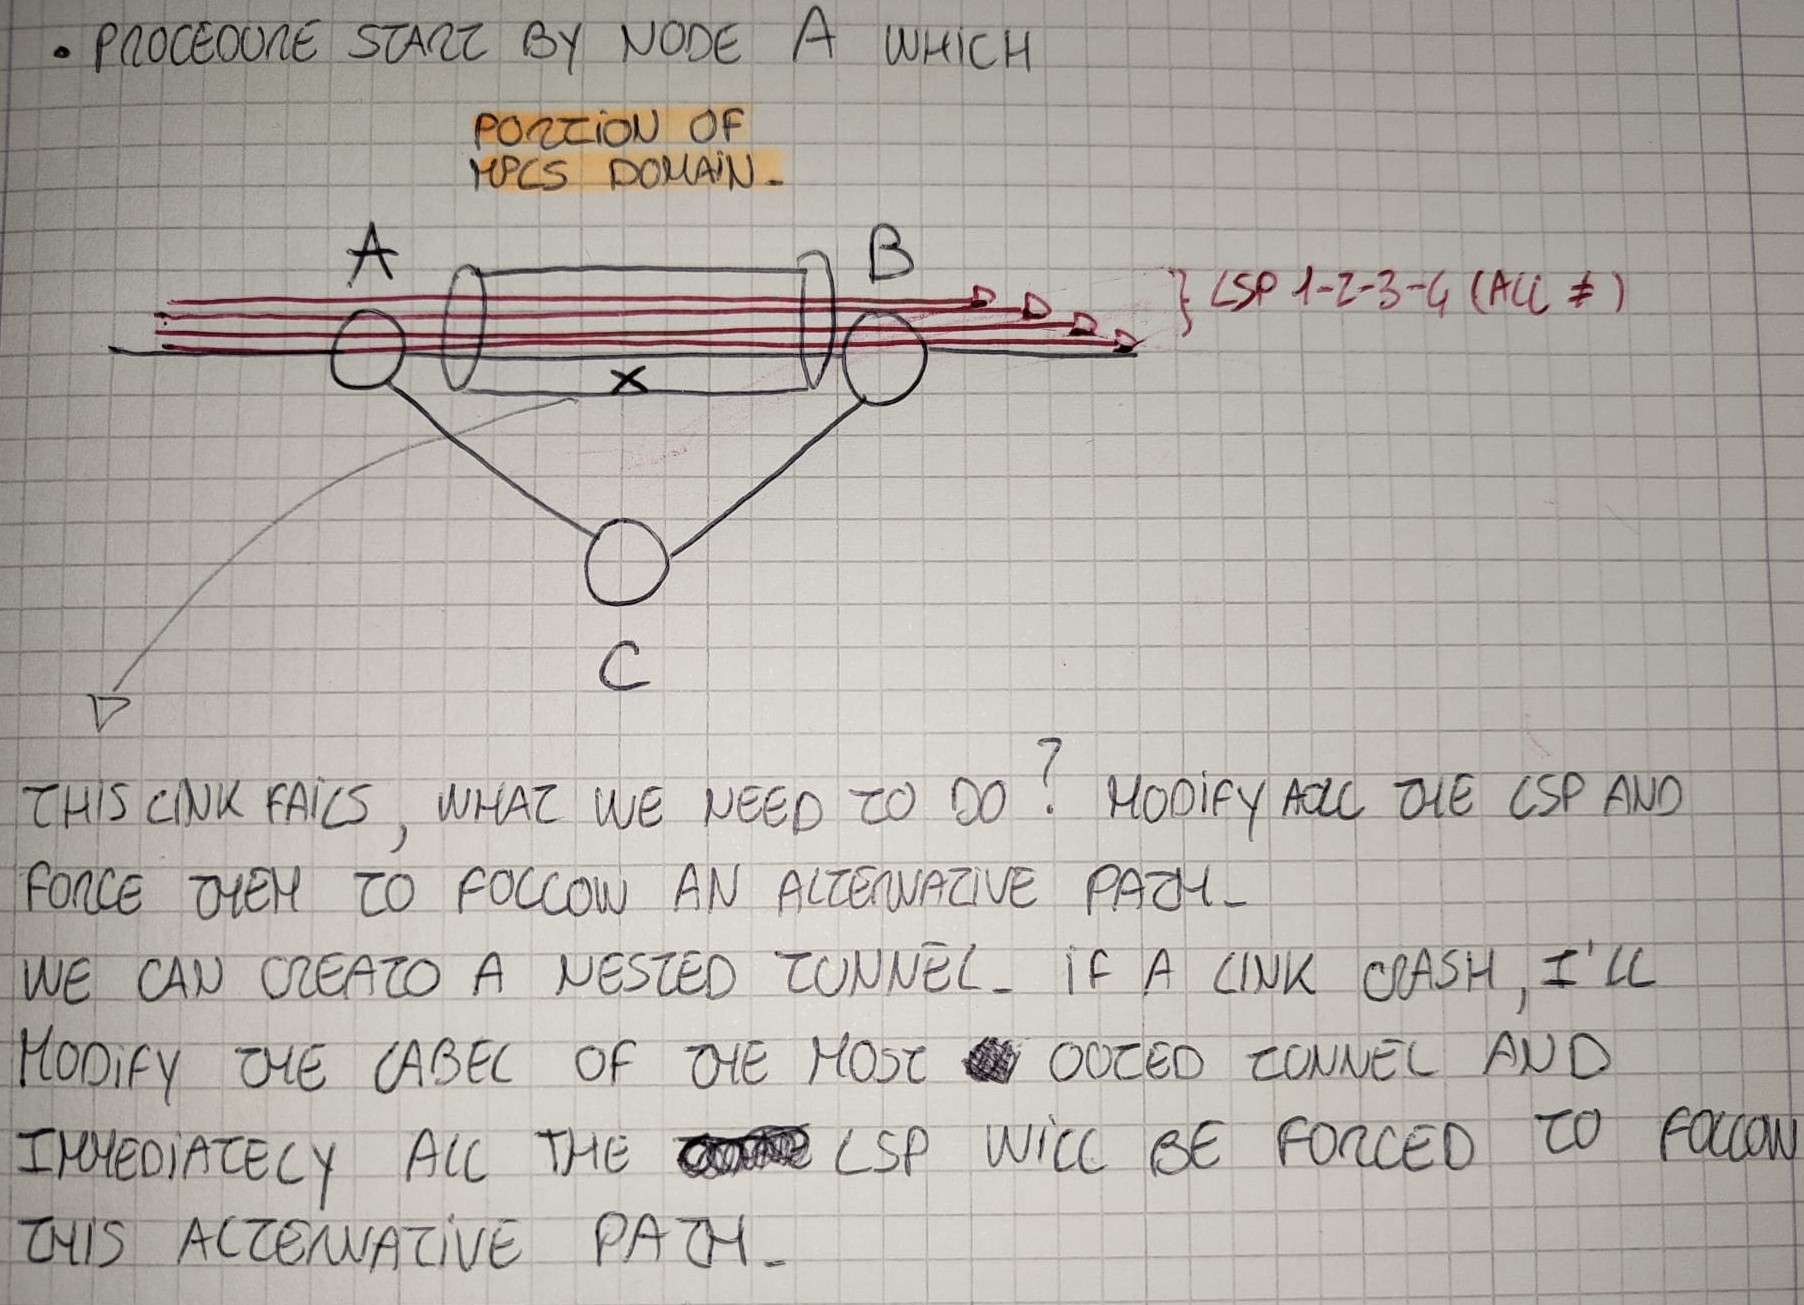 • PROCEDURE START BY NODE A WHICH
PORTION OF
MPLS DOMAIN-
A
B
LSP 1-2-3-4 (ALL ≠)
X
C
THIS LINK FAILS, WHAT WE NEED TO DO? MODIFY ALL THE LSP AND
FORCE THEM TO FOLLOW AN ALTERNATIVE PATH-
WE CAN CREATO A NESTED TUNNEL- IF A LINK CRASH, I'LL
MODIFY THE LABEL OF THE MOST OUTED TUNNEL AND
IMMEDIATELY ALL THE LSP WILL BE FORCED TO FOLLOW
THIS ALTERNATIVE PATH-